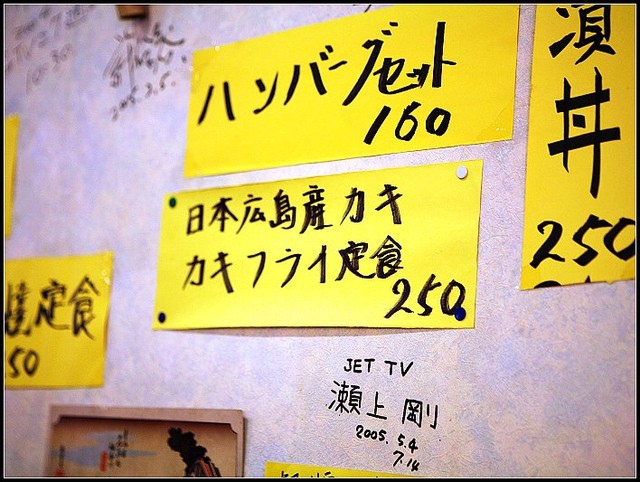 ハンバーグセット
160
日本広島産カキ
カキフライ定食
250
丼
250
焼定食
50
JET TV
瀬上剛
2005.5.4
7.14
2005.2.6.